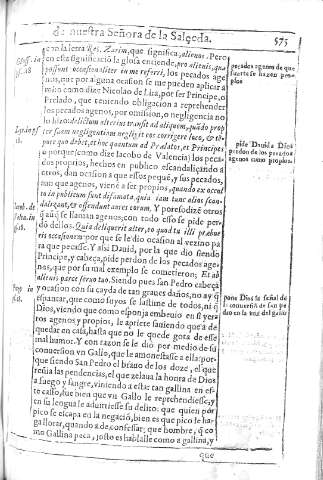 de nuestra Señora de la Salceda. 575
con la letra Res. Zarim, que significa, alienos. Pero
en esta significació la glosa entiende, pro alienis, qua
possunt occasionaliter en me referri, los pecados age-
nos, que por alguna ocasion se me pueden aplicar a
mi: como dize Nicolao de Lira, por ser Principe, o
Prelado, que teniendo obligacion a reprehender
los pecados agenos, por omision, o negligencia no
lo hizo: delictum alterius transit ad aliquem, quãdo prop
ter suam negligentiam negligit eos corrigere loco,
quo debet, et hoc quantum ad Prelatos, et Principes
o porque (como dize Iacobo de Valencia) los peca-
dos propios, hechos en publico escandaliçando a
otros, dan ocasion a que estos peque, y sus pecados,
aun que agenos, viene a ser propios, quando ex occul
to in publicum sunt difamata, quia iam tunc alios scan-
dalizant, et offendunt aures eorum. Y por esso dize otros
q̃ aũq̃ se llaman agenos, con todo esso se pide per-
do dellos. Quia deliquerit alter, eo quod tu illi præbue
ris occasionem: por que se le dio ocasion al vezino pa
ra que pecasse. Y assi Dauid, por la que dio siendo
Principe, y cabeça, pide perdon de los pecados age-
nos, que por su mal exemplo se cometieron; Et ab
alienis parce seruo tuo. Siendo pues san Pedro cabeça
y ocasion con su cayda de tan graues daños, no ay q̃
espantar, que como suyos se lastime de todos, ni q̃
Dios, viendo que como esponja embeuio en si yerros
agenos y propios, le apriete haziendo que a de
quedar en casa, hasta que no le quede gota de esse
mal humor. Y con razon se le dio por medio de su
conuersion vn Gallo, que le amonestasse a ella: por-
que siendo San Pedro el brauo de los doze, el que
reñia las pendencias, el que zelaua la honra de Dios
a fuego y sangre, viniendo a esta: tan gallina en es-
te caso, fue bien que vn Gallo le reprehendiesse, y
en su lengua le aduirtiesse su delito: que quien por
pico se escapa en la negació, bien es que pico le ha-
ga llorar, quando a de confessar: que hombre, q̃ co
mo Gallina peca, justo es hablalle como a gallina, y
que
pecados agenos de que
suerte se hazen pro-
pios
pide Dauid a Dios
perdon de los pecados
agenos como propios.
pone Dios te señal de
la conuersió de san Pe
dro en la voz del gallo